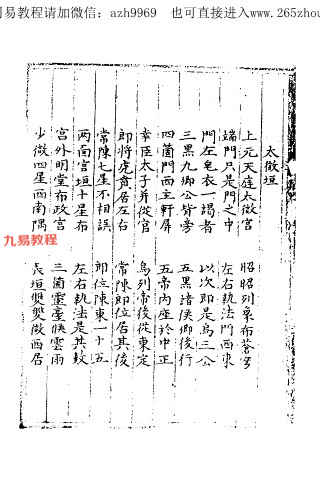 易教程请加微信：azh9969 也可直接进入www.265zhou
太微垣
上元天庭太微宮 昭昭列象布蒼穹
端門只是門之中 左右執法門西東
門左皂衣一謁者 以次即是烏三公
三黑九卿公背旁 五黑諸侯卿後行
四箇門西主軒屏 五帝內座於中正
幸臣太子并從官 烏列帝後從東定
郎將虎賁居左右 常陳郎位居其後
常陳七星不相誤 郎位陳東一十五
兩面宮垣十星布 左右執法是其數
宮外明堂布政宮 三箇靈臺候雲雨
少微四星西南隅 長垣雙雙微西居
九易教程